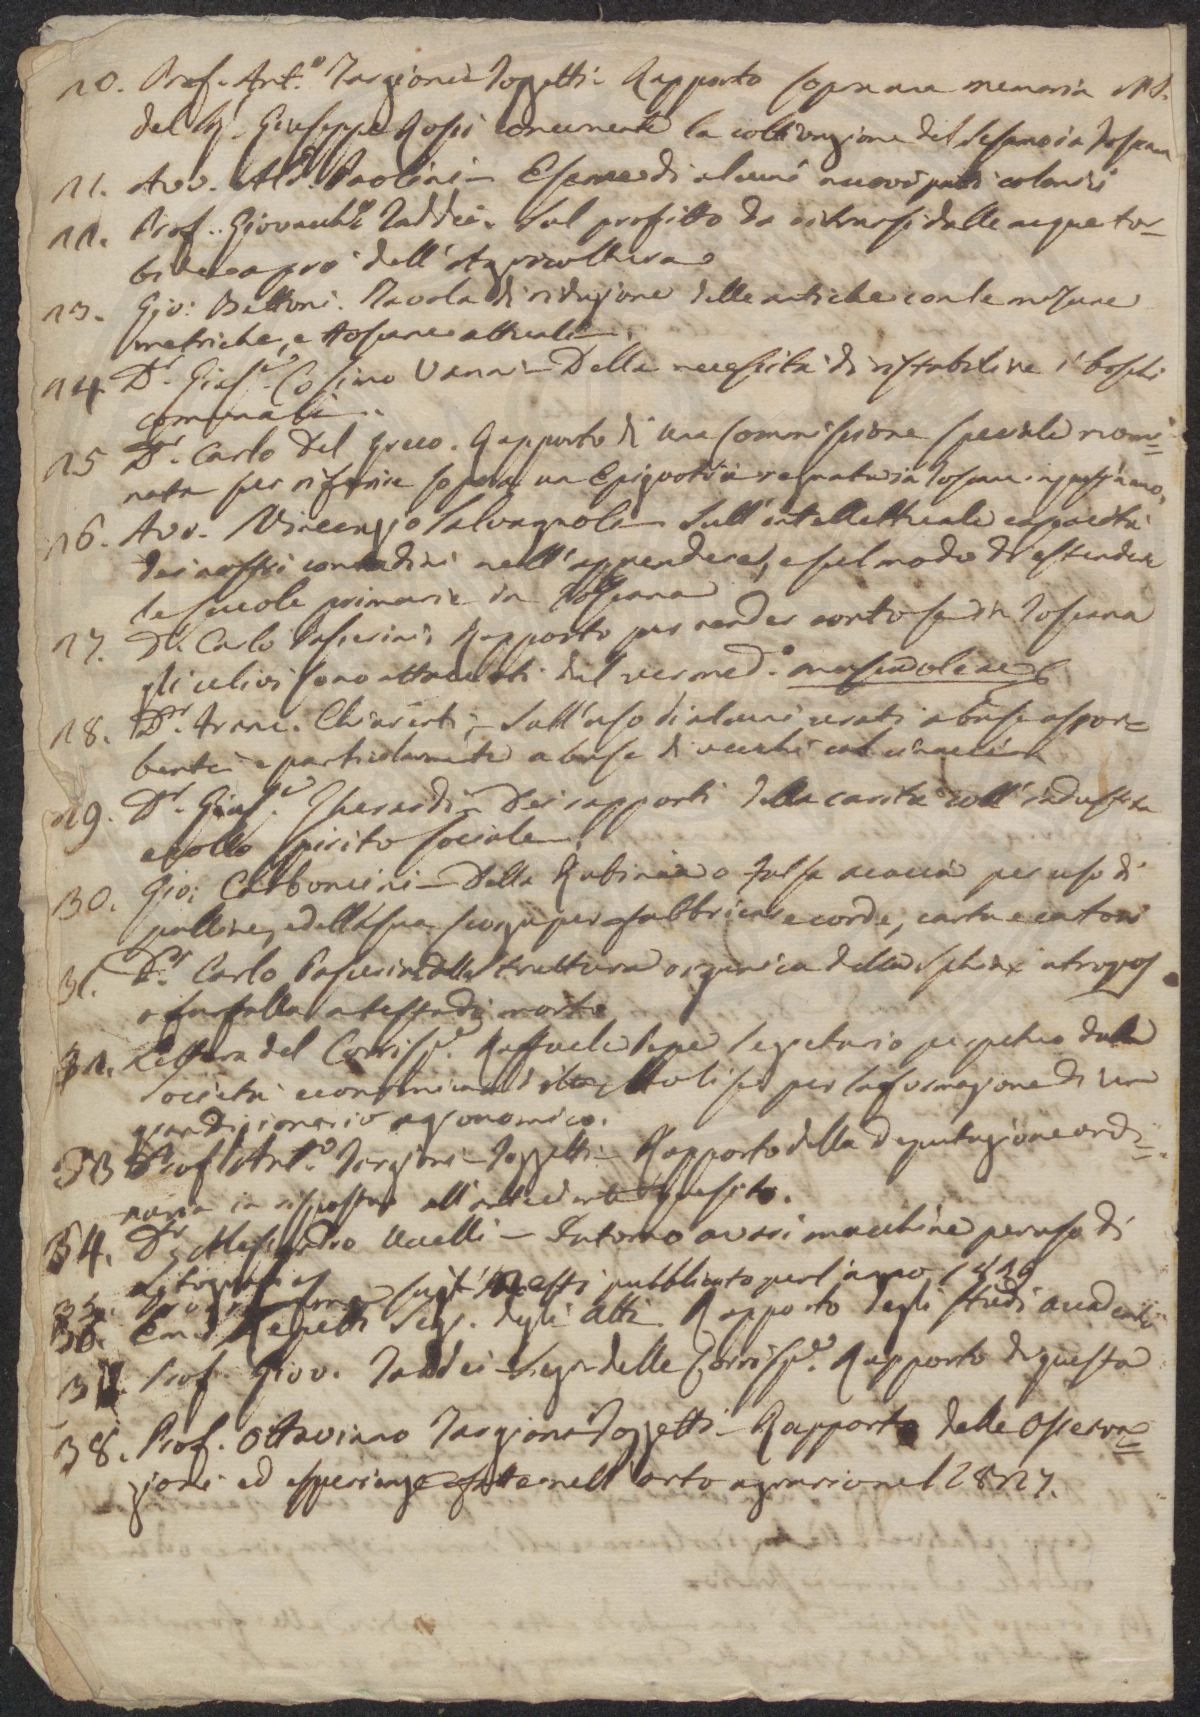 20. Prof. Ant.º Targioni Tozzetti - Rapporto sopra una memoria MS.
del Sig. Giuseppe Rossi concernente la coltivazione del Sesamo in Toscana
21. Avv. Ald. Paolini - Esame di alcuni nuovi patti colonici
22. Prof. Giovacch.º Taddei. Sul profitto da ritrarsi dalle acque tor=
bide a pro' dell'Agricoltura
23. Gio: Bettoni. Tavola di riduzione delle antiche con le misure
metriche, e toscane attuali.
24. Dr. Gius.e Cosimo Vanni - Della necessità di ristabilire i boschi
comunali.
25 Dr. Carlo Del Greco. Rapporto di una Commissione speciale nomi=
nata per riferire sopra un Epizootia regnata in Toscana
26. Avv. Vincenzio Salvagnoli - Sull'intellettuale capacità
dei nostri contadini nell'apprendere, e sul modo di estendere
le scuole primarie in Toscana
27. Dr. Carlo Passerini, Rapporto per render conto se in Toscana
gli ulivi sono attaccati dal verme d.º
28. Dr. Franc. Chiarenti, - Sull'uso di alcuni
e particolarmente a base di
29. Dr. Gius.e Gherardi - Dei rapporti della carità coll'industria
e collo spirito sociale.
30. Gio: Carboncini - Della Robinia o falsa acacia per uso di
e della sua scorza per fabbricare corde, carta e cartoni
31. Dr. Carlo Passerini Della struttura organica della Sphinx atropos
o farfalla a testa di morto
32. Lettera del Corrisp.e Raffaele Pepe Segretario perpetuo della
società economica di Molise per la formazione di un
gran dizionario agronomico.
33 Prof. Ant.º Targioni - Tozzetti - Rapporto della Deputazione ordi=
naria in risposta all'antecedente quesito.
34. Dr. Alessandro Uccelli - Intorno a varie macchine per uso di
35. pubblicato per l'anno 1829
36. Em. Repetti Seg. degli Atti Rapporto degli studi accademici
37. Prof. Giov. Taddei - Seg. delle Corrisp.e Rapporto di questa
38. Prof. Ottaviano Targioni Tozzetti - Rapporto delle Osserva=
zioni ed esperienze fatte nell'orto agrario nel 1827.